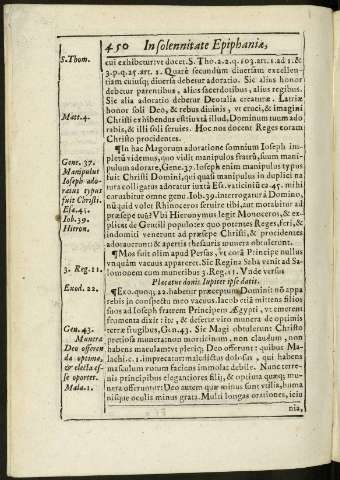 450 In solennitate Epiphaniæ,
S. Thom.
cui exhibetur ive docet S. Tho. 2.2.q. 103. art. 1. ad 1. &
3.p.q. 25. art. 1. Quare secundum diuersam excellen-
tiam cuiusq; diuersa debetur adoratio. Sic alius honor
debetur parentibus, alius sacerdotibus, alius regibus.
Sic alia adoratio debetur Deo talia creaturæ. Latriæ
honor soli Deo, & rebus diuinis, vt cruci, & imagini
Matt. 4.
Christi exhibendus est iuxta illud, Dominum tuum ado
rabis, & illi soli seruies. Hoc nos docent Reges coram
Christo procidentes.
¶ In hac Magorum adoratione somnium Ioseph im-
Gene. 37.
Manipulut
Ioseph ado-
ratus typus
fuit Christi.
Esa. 45.
Iob. 39.
Hieron.
pletū videmus, quo vidit manipulos fratrū, suum mani-
pulum adorare, Gene. 37. Ioseph enim manipulus typus
fuit Christi Domini, qui quasi manipulus in duplici na
tura colligatus adoratur iuxtà Esa. vaticiniū ca. 45. mihi
curuabitur omne genu. Iob. 39. interrogatur à Domino,
nū quid volet Rhinoceros seruire tibi, aut morabitur ad
præsepe tuū? Vbi Hieronymus legit Monoceros, & ex-
plicat de Gentili populo: ex quo potentes Reges, feri, &
indomiti venerunt ad præsepe Christi, & procidentes
adorauerunt & apertis thesauris munera obtulerunt.
¶ Mos fuit olim apud Persas, vt corā Principe nullus
vnquàm vacuus appareret. Sic Regina Saba venit ad Sa-
3. Reg. 11.
lomonem cum muneribus 3. Reg. 11. Vnde versus
Placatur donis Iupiter ipse datis.
Exod. 22.
¶ Exo. quoq; 22. habetur præceptum Domini: nō appa
rebis in conspectu meo vacuus. Iacob etiā mittens filios
suos ad Ioseph fratrem Principem Ægypti, vt emerent
frumenta dixit: ite, & deferte viro munera de optimis
Gen. 43.
Munera
Deo offeren
da optima,
& electa es-
se oportet.
Mala. 1.
terræ frugibus, Gen. 43. Sic Magi obtulerunt Christo
pretiosa munera: non morticinum, non claudum, non
habens maculam vt pleriq; Deo offerunt: quibus Ma-
lachi c. 1. imprecatur: maledictus dolosus, qui habens
masculum vouens faciens immolat debile. Nunc terre-
nis principibus elegantiores filij, & optima quæq; mu-
nera offeruntur: Deo autem quæ minus sunt vtilia, huma
nisque oculis minus grata. Multi longas orationes, ieiu
nia,